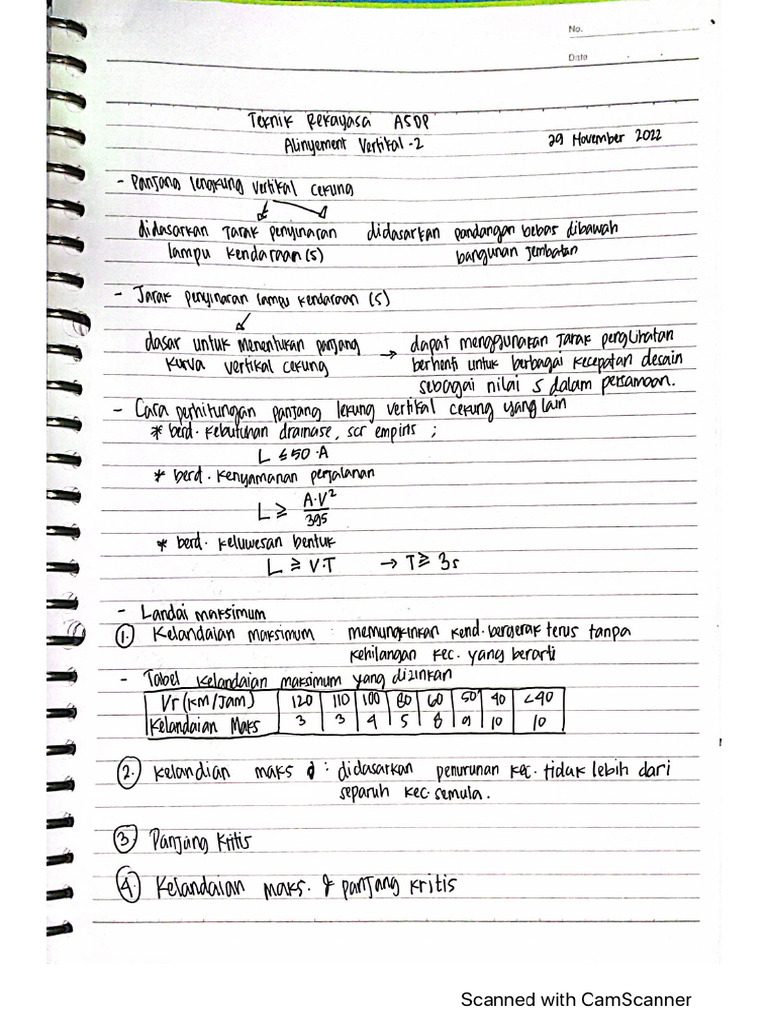 No.
Date
Teknik Rekayasa ASDP
Alinyement Vertikal -2
29 November 2022
- Panjang lengkung vertikal cekung
didasarkan Jarak penyinaran didasarkan pandangan bebas dibawah
lampu kendaraan (s) bangunan jembatan
- Jarak penyinaran lampu kendaraan (s)
dasar untuk menentukan panjang → dapat menggunakan Jarak penglihatan
kurva vertikal cekung berhenti untuk berbagai kecepatan desain
sebagai nilai s dalam persamaan.
- Cara perhitungan panjang lekung vertikal cekung yang lain
* berd. kebutuhan drainase, scr empiris ;
L ≤ 50 . A
* berd. kenyamanan perjalanan
L ≥ A.V² / 395
* berd. keluwesan bentuk
L ≥ V.T → T ≥ 3s
- Landai maksimum
1. Kelandaian maksimum : memungkinkan kend. bergerak terus tanpa
kehilangan kec. yang berarti
- Tabel kelandaian maksimum yang diizinkan
Vr (KM/Jam) 120 110 100 80 60 50 40 <40
Kelandaian Maks 3 3 4 5 8 9 10 10
2. Kelandian maks : didasarkan penurunan kec. tidak lebih dari
separuh kec. semula.
3 Panjang Kritis
4. Kelandaian maks. & panjang kritis
Scanned with CamScanner